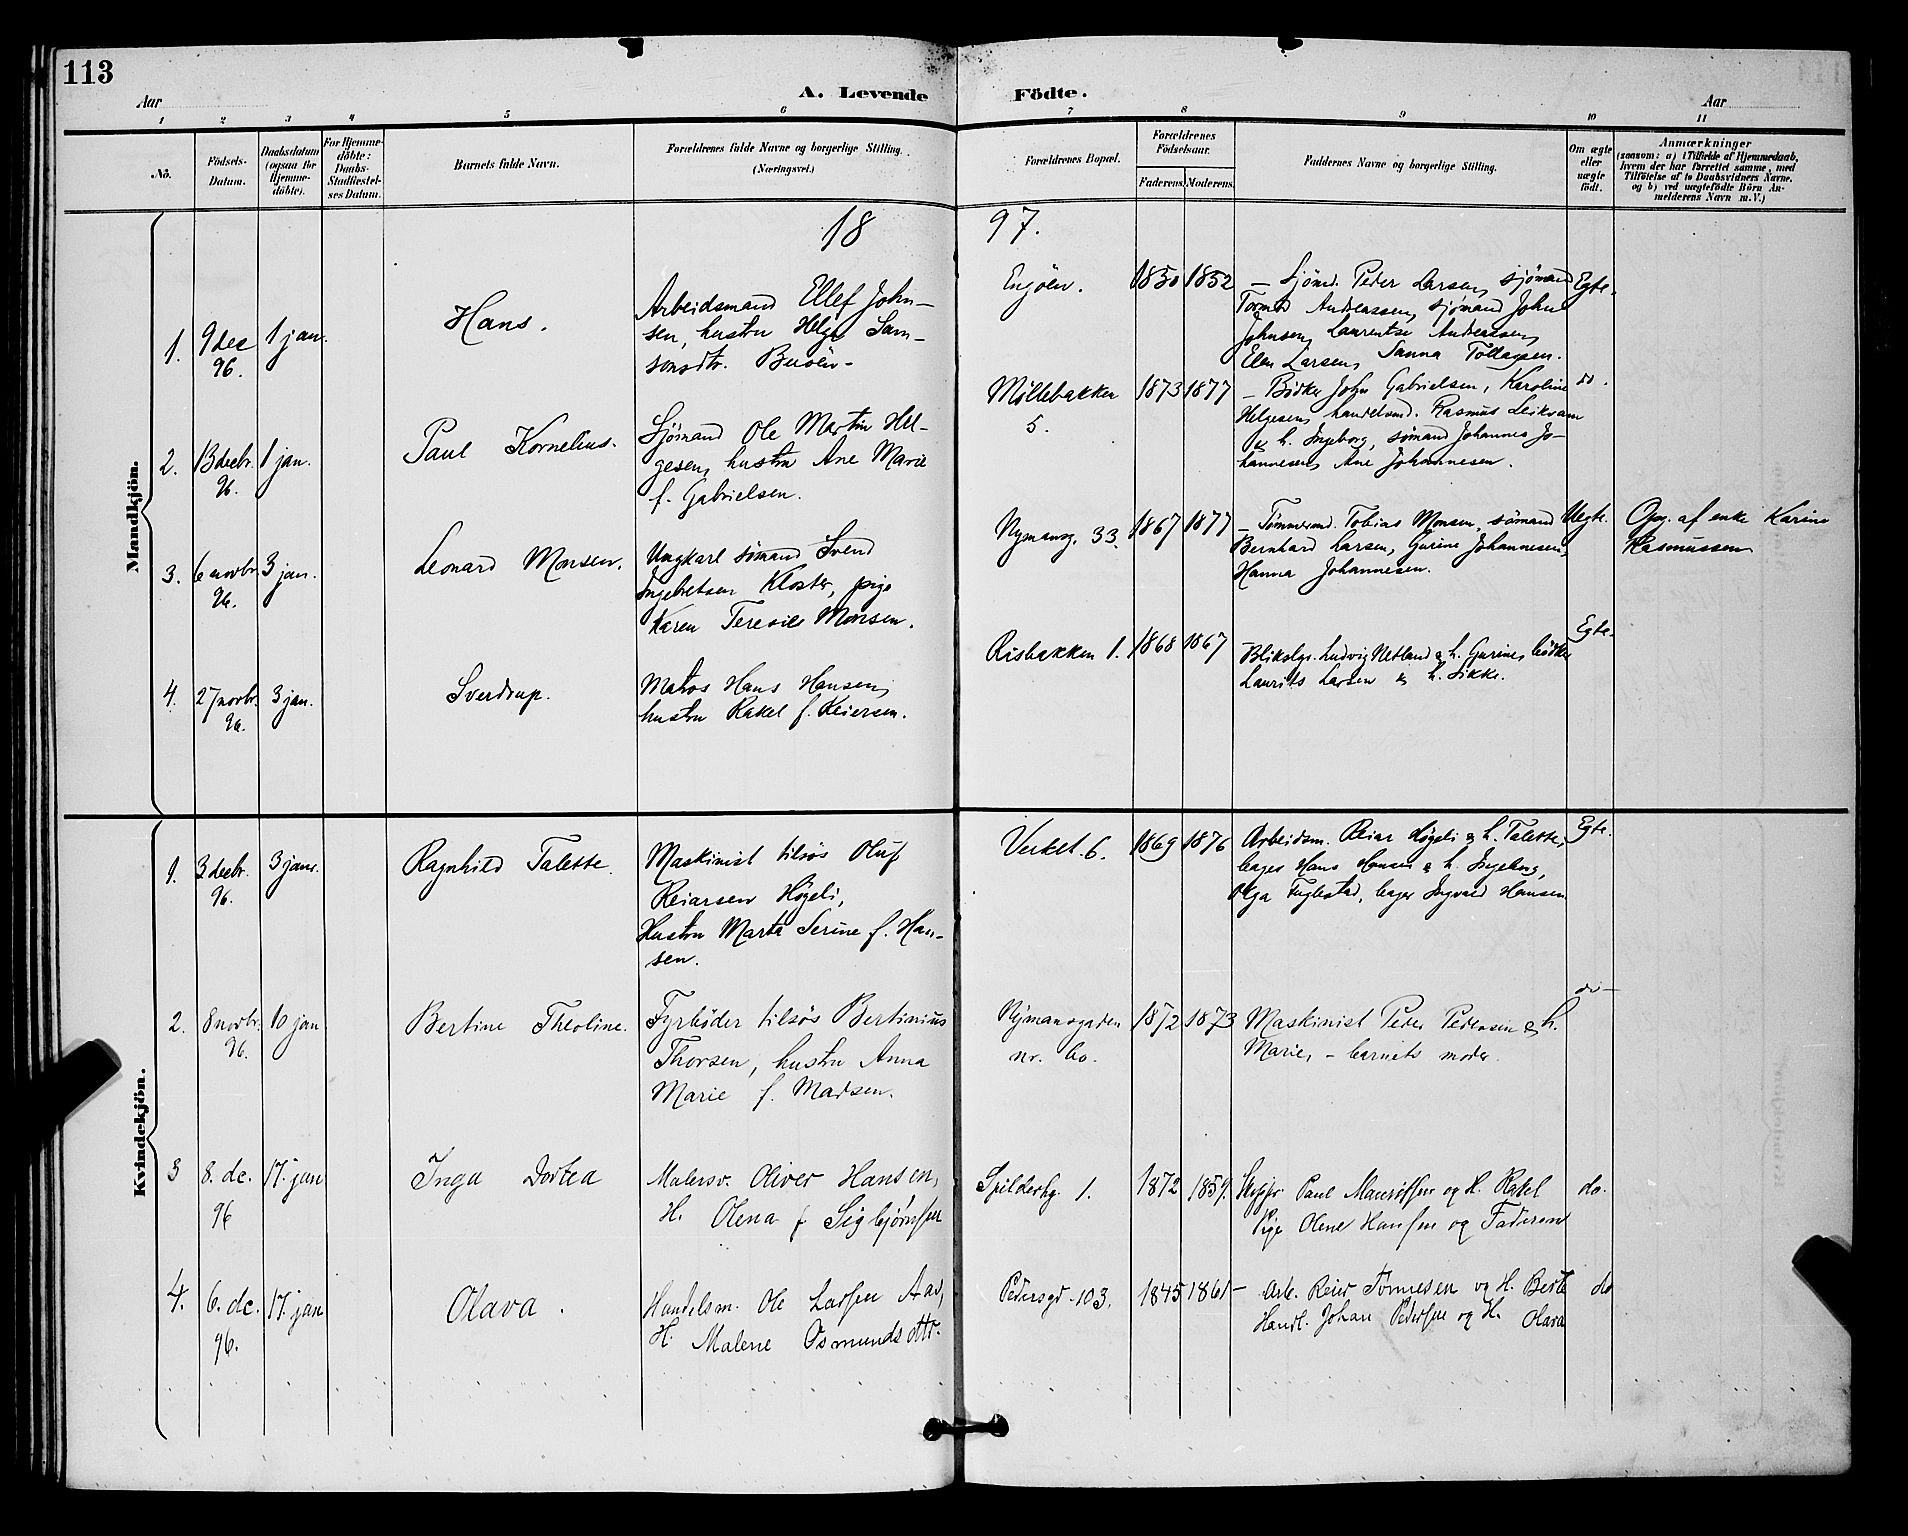 113
Aar
A. Levende Födte.
Aar
1 2 3 4 5 6 7 8 9 10 11
No.
Födsels-
Datum.
Daabsdatum
(ogsaa for
Hjemme-
döbte).
For Hjemme-
döbte:
Daabs-
Stadfæstel-
ses Datum.
Barnets fulde Navn.
Forældrenes fulde Navne og borgerlige Stilling.
(Næringsvei.)
Forældrenes Bopæl.
Forældrenes
Födselsaar.
Faderens. Moderens.
Faddernes Navne og borgerlige Stilling.
Om ægte
eller
uægte
födt.
Anmærkninger
(saasom: a) i Tilfælde af Hjemmedaab,
hvem der har forrettet samme, med
Tilföielse af to Daabsvidners Navne.
og b) ved uægtefödte Börn An-
melderens Navn m.V.)
18 97.
Mandkjön.
1.
9 dec
96.
1 jan.
Hans.
Arbeidsmand Ellef John-
sen, hustru Helga Sam-
sonsdtr. Buöen-
Engöen.
1850 1852
- Sjömd. Peder Larsen, sjömand
Tormod Andreassen, sjömand John
Johnsen, Laurentse Andreassen,
Elen Larsen, Sanna Tollagsen.
Egte.
2.
13 decbr.
96.
1 jan.
Paul Kornelius.
Sjömand Ole Martin Hel-
gesen, hustru Ane Marie
f. Gabrielsen.
Möllebakken
5.
1873 1877
- Bödker John Gabrielsen, Karoline
Helgesen, handelsmd. Rasmus Leiksam
& h. Ingeborg, sömand Johannes Jo-
hannesen, Ane Johannesen.
do.
3.
6 novbr.
96.
3 jan.
Leonard Monsen.
Ungkarl sömand Svend
Ingebretsen Kloster, pige
Karen Teresie Monsen.
Nymansg. 33.
1867 1877
- Tömmermd. Tobias Monsen, sömand
Bernhard Larsen, Gurine Johannesen,
Hanna Johannesen.
Uegte.
Opg. af enke Karine
Rasmussen
4.
27 novbr.
96.
3 jan.
Sverdrup.
Matros Hans Hansen,
hustru Rakel f. Reiersen.
Risbakken 1.
1868 1867
Blikslgr. Ludvig Netland & h. Gurine, bödker
Laurits Larsen & h. Sikke.
Egte.
Kvindekjön.
1.
3 decbr.
96.
3 janr.
Ragnhild Talette.
Maskinist tilsös Oluf
Reiarsen Högeli,
Hustru Marta Serine f. Han-
sen.
Verket. 6.
1869 1876
Arbeidsm. Reiar Högeli & h. Talette,
bager Hans Hansen & h. Ingeborg,
Olga Fuglestad, bager Ingvald Hansen
Egte.
2.
8 novbr.
96.
10 jan
Bertine Theoline.
Fyrböder tilsös Bertinius
Thorsen, hustru Anna
Marie f. Madsen.
Nymansgaden
nr. 60.
1872 1873
Maskinist Peder Pedersen & h.
Marie, - barnets moder.
do -
3
8. dc.
96
17. jan
Inga Dortea
Malersv. Oliver Hansen,
H. Olena f Sigbjørnsen
Spilderhg. 1.
1872 1859.
Skippr Paul Mauritssen og H. Rakel
Pige Olene Hanssen og Faderen
do.
4.
6. dc.
96.
17. jan
Olava.
Handelsm. Ole Larsen Aas,
H. Malene Osmundsdttr.
Pedersgd. 103.
1845 1861 -
Arb. Reier Tönnesen og H. Berte
Handl. Johan Pedersen og H. Olava
do